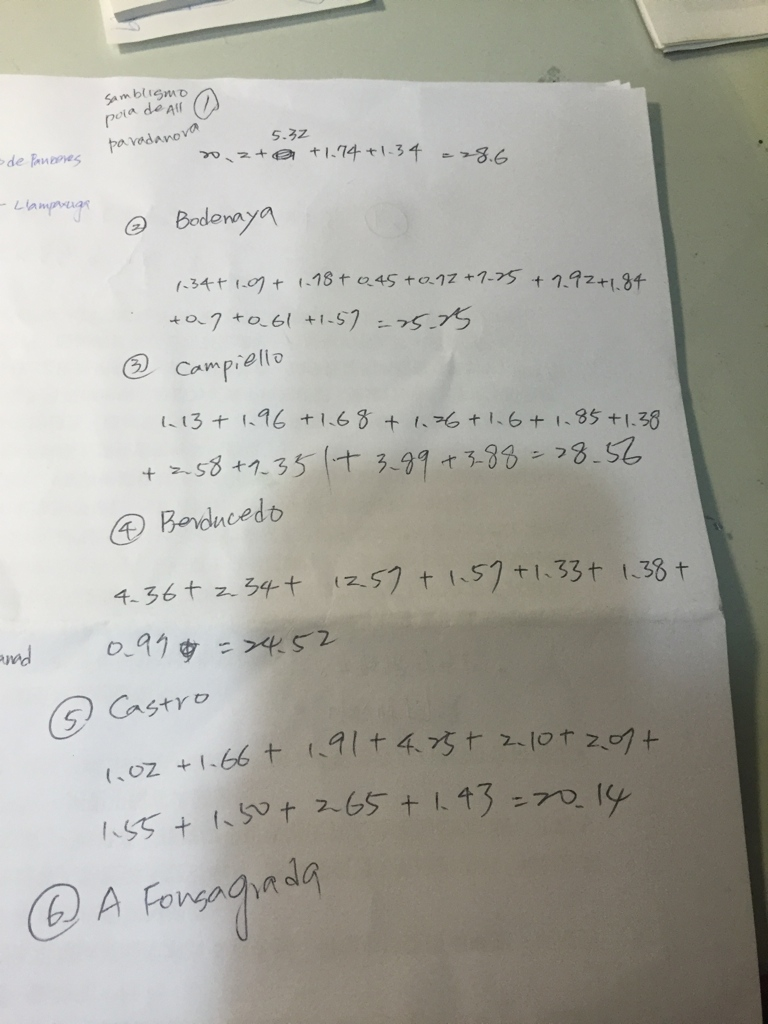 samblismo ①
pola de All
paradanova
5.32
20.2+ +1.74+1.34 =28.6
de Panceres
- Llamparuga
② Bodenaya
1.34+1.07+ 1.78+0.45+0.72+7.25 +7.92+1.84
+0.7+0.61+1.57 =25.25
③ Campiello
1.13+1.96+1.68+1.26+1.6+1.85+1.38
+2.58+7.35 + 3.89+3.88=28.56
④ Berducedo
4.36+2.34+ 12.57+1.57+1.33+1.38+
0.97 =24.52
anad
⑤ Castro
1.02+1.66+1.91+4.25+2.10+2.07+
1.55+1.50+2.65+1.43=20.14
⑥ A Fonsagrada